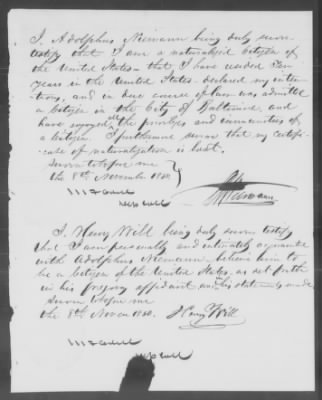 I Adolphus Niemann being duly sworn
testify that I am a naturalized Citizen of
the United States - that I have resided Ten
years in the United States. declared my inten
tions, and in due course of law was admitted
a Citizen in the City of Baltimore, and
have enjoyed all the privileges and immunities of
a Citizen. I furthermore swear that my certifi-
cate of naturalization is lost.
Sworn to before me
the 8th November 1850.
Niemann
I, Henry Will being duly sworn testify
that I am personally and intimately acquainted
with Adolphus Niemann, believe him to
be a Citizen of the United States, as set forth
in his foregoing affidavit and his statements made
Sworn to before me
the 8th Novem 1850.
Henry Will